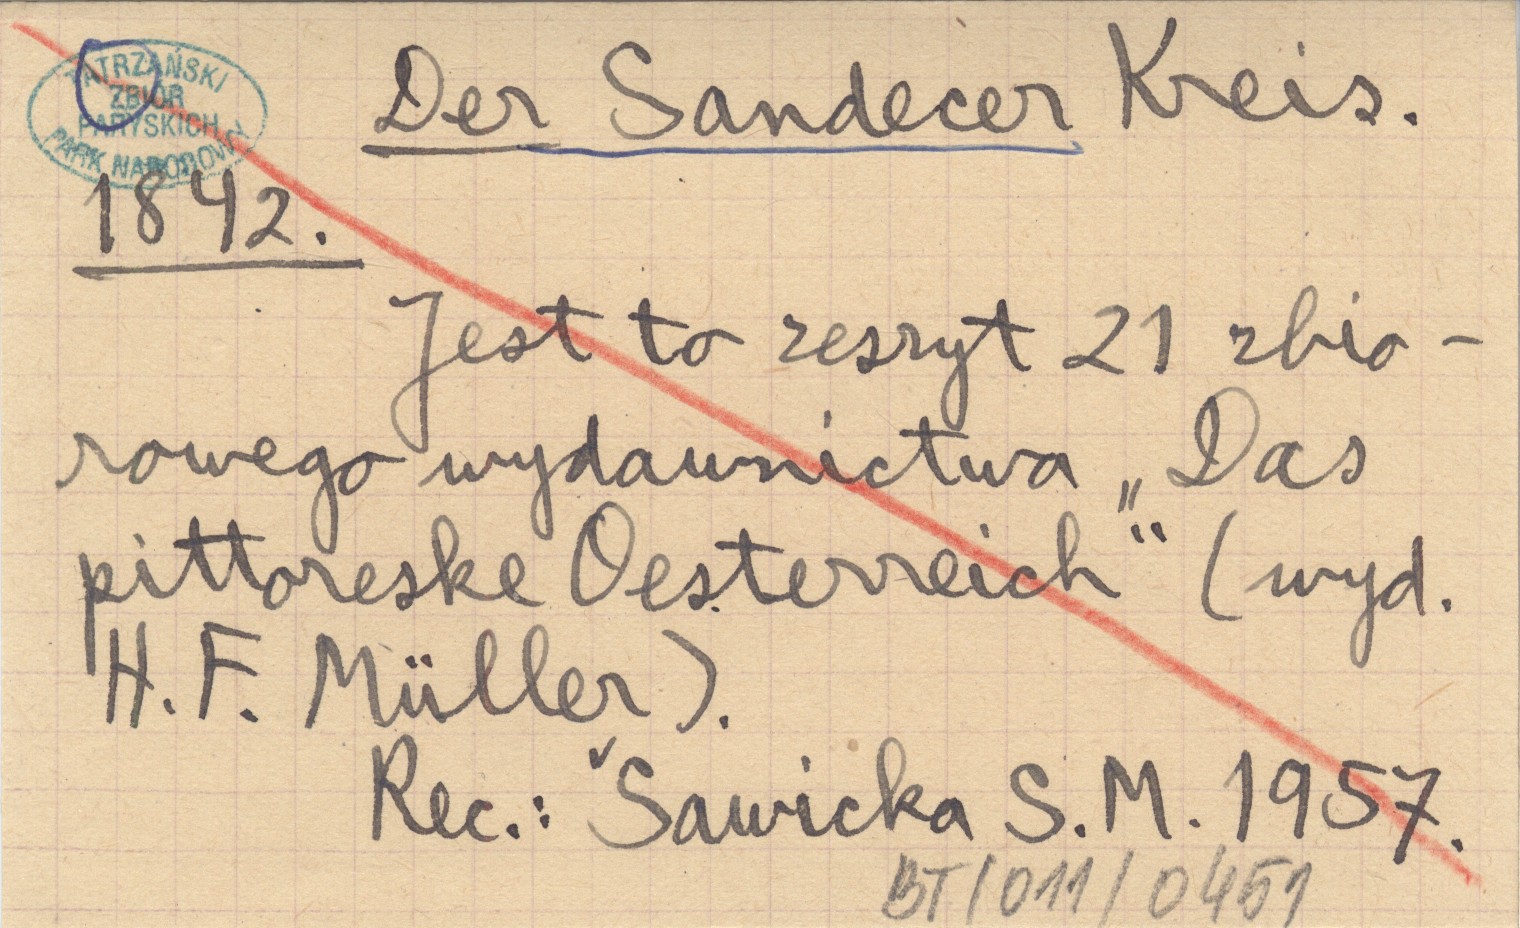 TATRZAŃSKI
ZBIÓR
PARYSKICH
PARK NARODOWY
Der Sandecer Kreis.
1842.
Jest to zeszyt 21 zbio-
rowego wydawnictwa „Das
pittoreske Oesterreich“ (wyd.
H. F. Müller).
Rec.: Sawicka S. M. 1957.
BT/011/0451